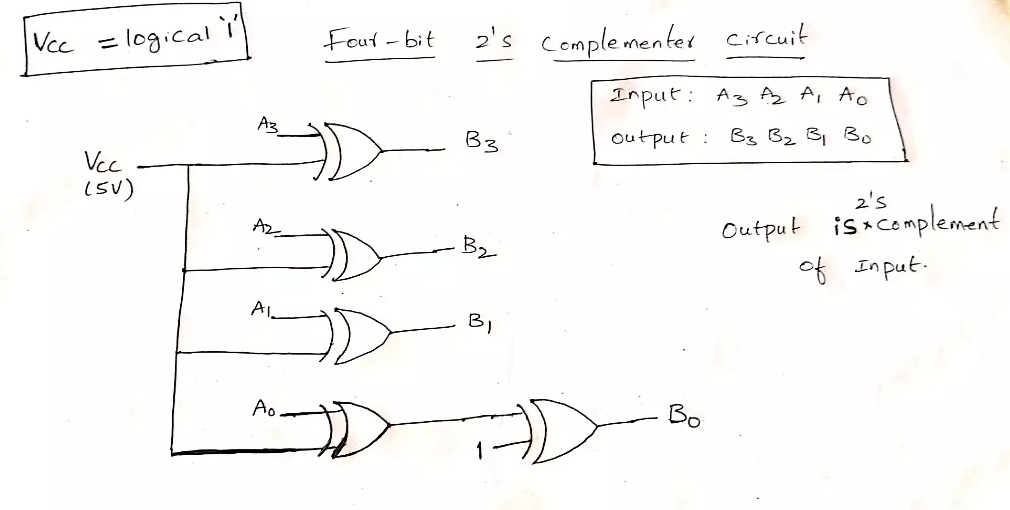 Vcc = logical '1'
Four-bit 2's Complementer Circuit
Input: A3 A2 A1 A0
Output: B3 B2 B1 B0
A3
B3
Vcc
(5V)
A2
B2
A1
B1
A0
1
B0
2's
Output is × Complement
of Input.